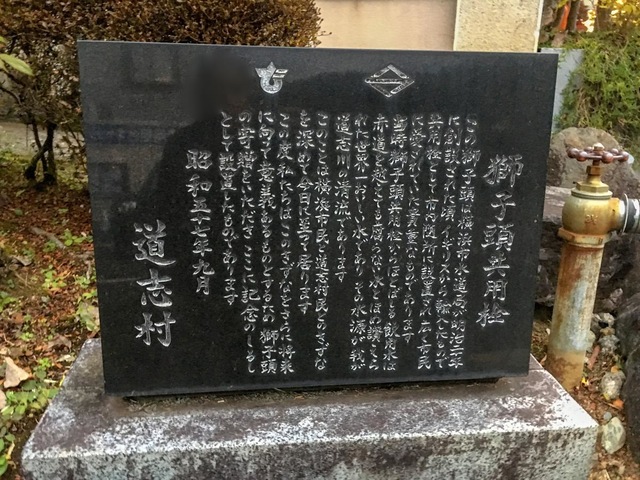 獅子頭共用栓
この獅子頭は横浜市水道局が明治二十年
に創設された頃イギリスから輸入したもので
共用栓として市内随所に設置され広く市民
に愛用されていた貴重なものであります
当時獅子頭共用栓からほとばしる飲料水は
赤道を越えても腐らない水とほめ讃えら
れた世界一おいしい水でありその水源が我が
道志川の清流であります
このことは横浜市民と道志村民とのきずな
を深めて今日に至って居ります
この度私たちはこのきずなをさらに将来
に向って意義あるものとするため獅子頭
の寄贈をいただきここに記念のしるし
として設置したものであります
昭和五十七年九月
道志村